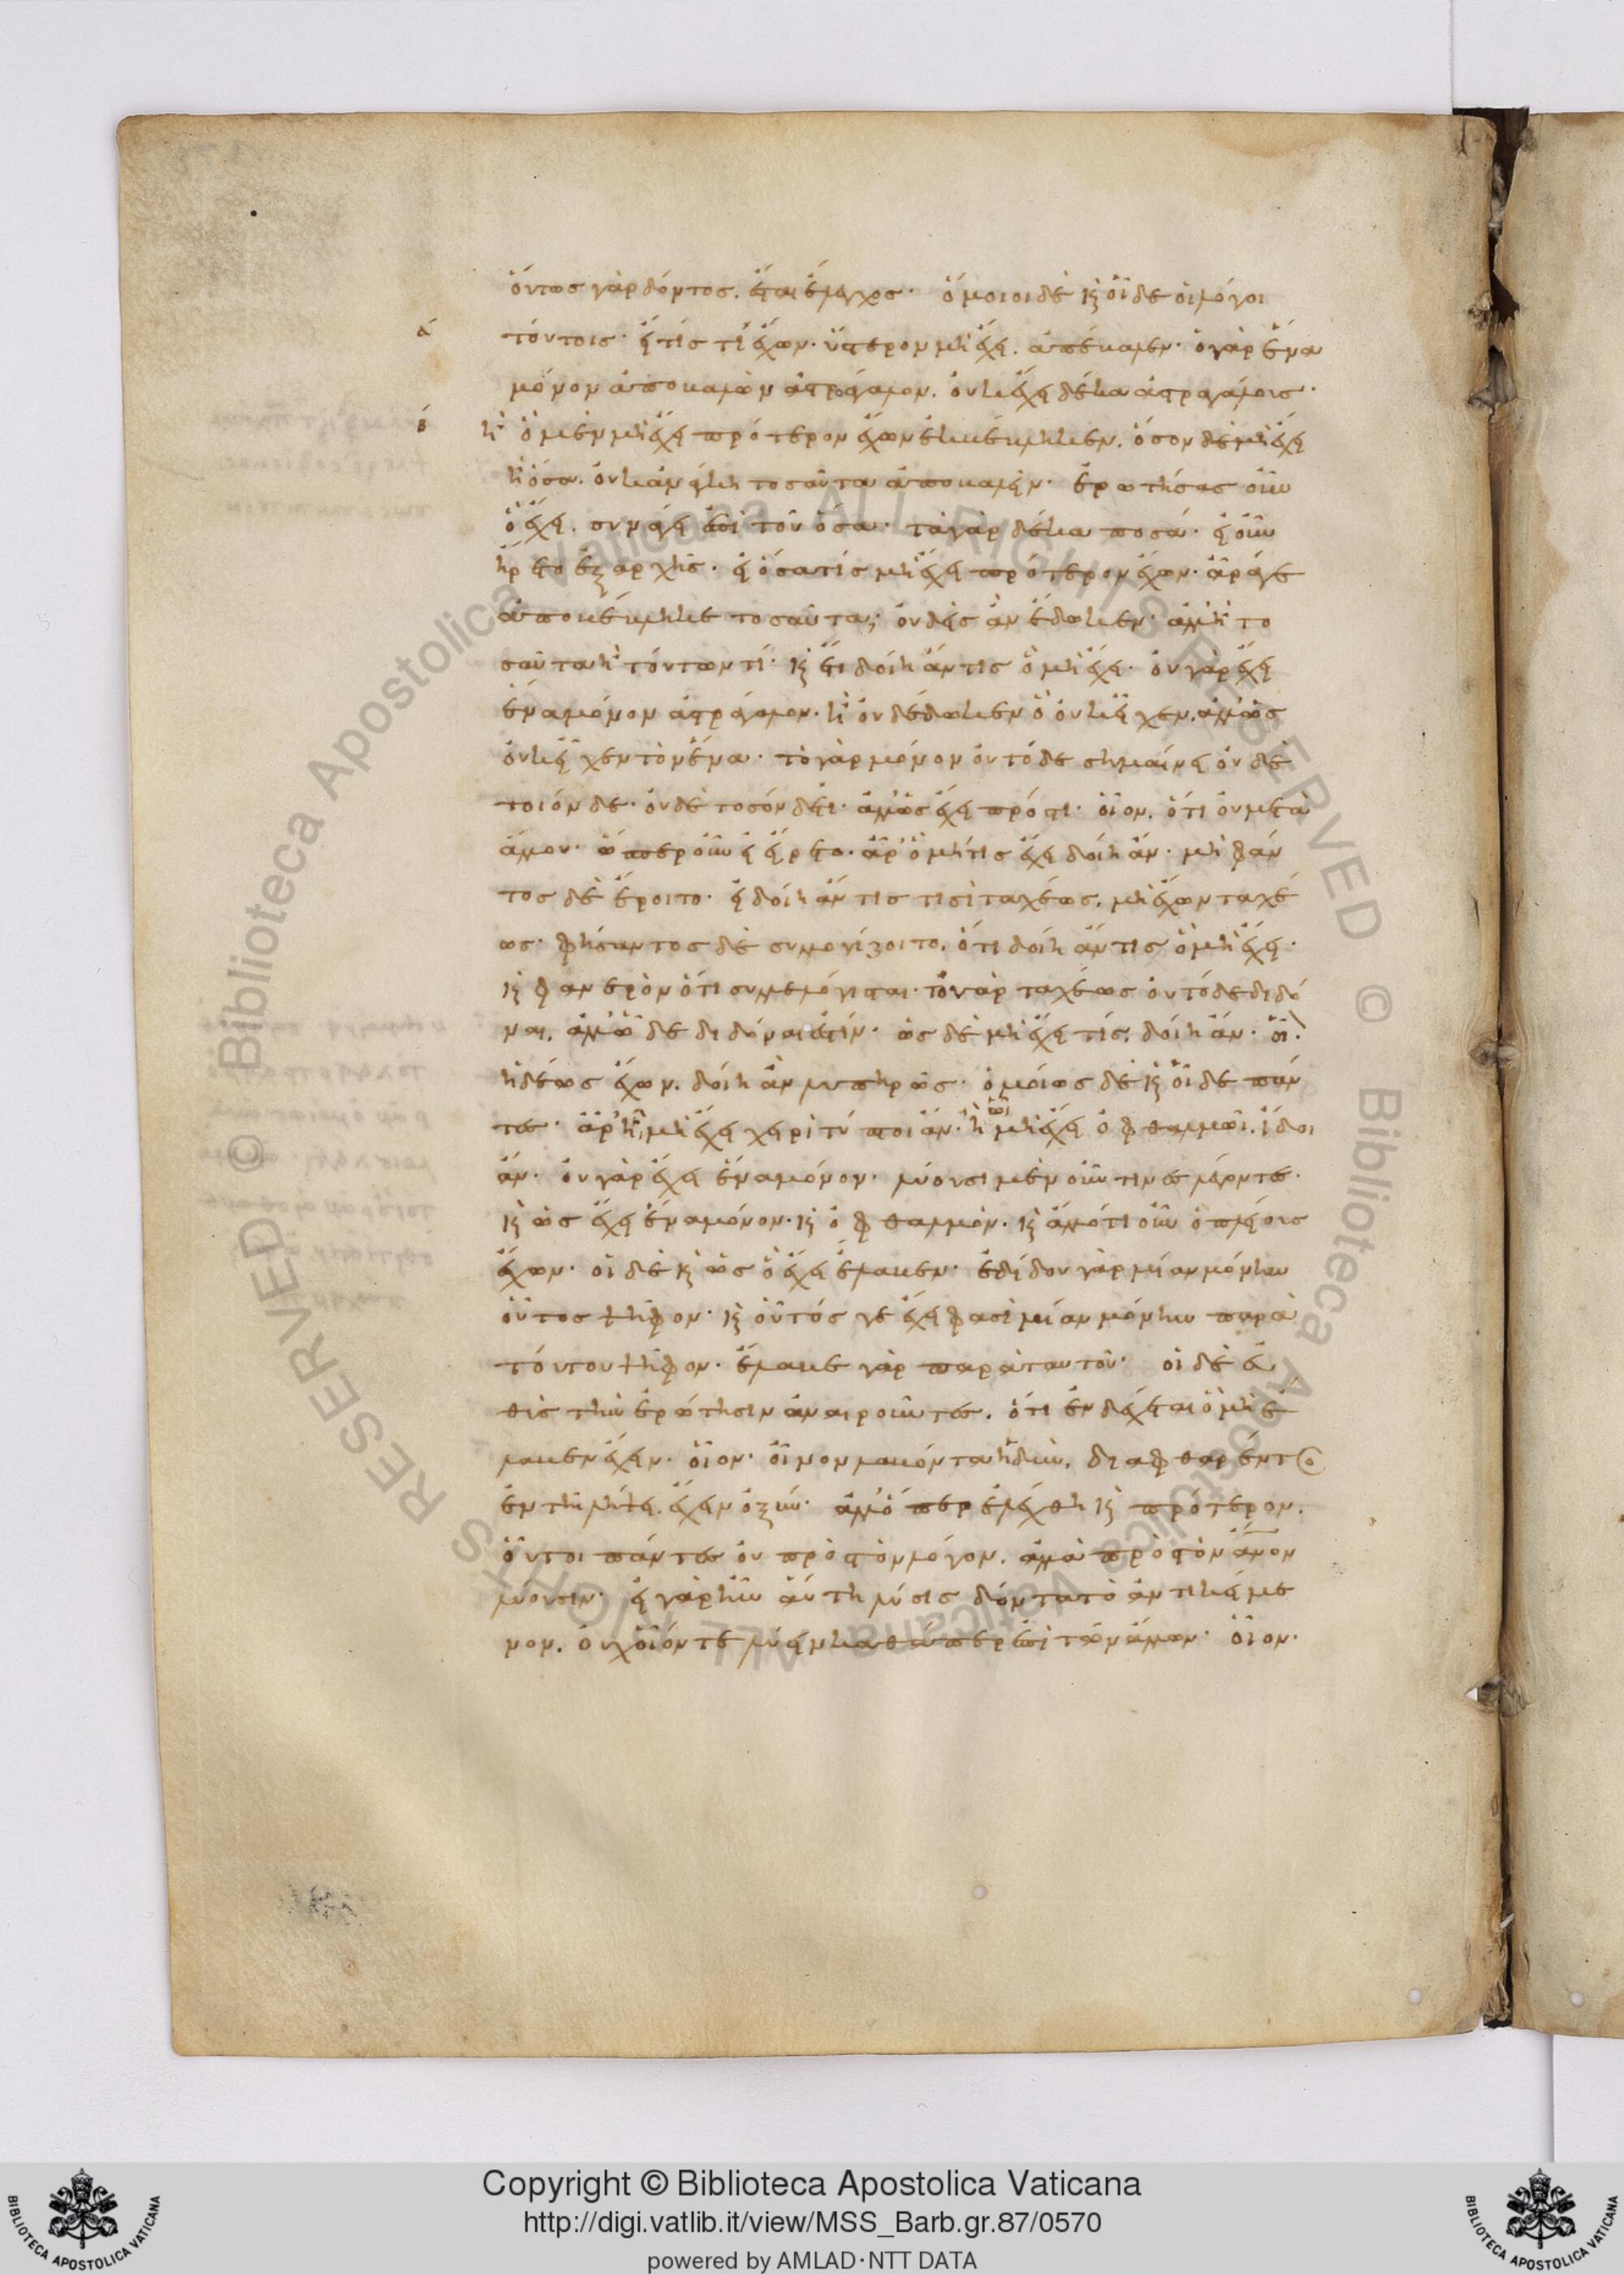 ά
β
οὕτως γὰρ δόντος. ἔσται ἔλεγχος· ὅμοιοι δὲ καὶ οἵδε οἱ λόγοι
τούτοις· εἴ τίς τι ἔχων· ὕστερον μὴ ἔχει. ἀπέβαλεν· ὁ γὰρ ἕνα
μόνον ἀποβαλὼν ἀστράγαλον. οὐχ ἕξει δέκα ἀστραγάλους·
ἢ ὃ μὲν μὴ ἔχει πρότερον ἔχων ἐκβέβληκεν. ὅσον δὲ μὴ ἔχει
ἢ ὅσα. οὐκ ἀνάγκη τοσαῦτα ἀποβαλεῖν· ἐρωτήσας οὖν
ὃ ἔχει. συνάγει ἐπὶ τοῦ ὅσα· τὰ γὰρ δέκα ποσά· εἰ οὖν
ἤρετο ἐξ ἀρχῆς· εἰ ὅσα τίς μὴ ἔχει πρότερον ἔχων· ἆρά γε
ἀποβέβληκε τοσαῦτα; οὐδεὶς ἂν ἔδωκεν· ἀλλ' ἢ το
σαῦτα ἢ τούτων τί· καὶ ἔτι δοίη ἄν τις ὃ μὴ ἔχει· οὐ γὰρ ἔχει
ἕνα μόνον ἀστράγαλον· ἢ οὐ δέδωκεν ὃ οὐκ εἶχεν. ἀλλ' ὡς
οὐκ εἶχεν τὸν ἕνα· τὸ γὰρ μόνον οὐ τόδε σημαίνει οὐδὲ
τοιόνδε· οὐδὲ τοσόνδέ τι· ἀλλ' ὡς ἔχει πρός τι· οἷον. ὅτι οὐ μετὰ
ἄλλου· ὥσπερ οὖν εἰ ἤρετο· ἆρ' ὃ μή τις ἔχει δοίη ἄν· μὴ φάν
τος δὲ ἔροιτο· εἰ δοίη ἄν τις τισὶ ταχέως. μὴ ἔχων ταχέ
ως· φήσαντος δὲ συλλογίζοιτο. ὅτι δοίη ἄν τις ὃ μὴ ἔχει·
καὶ φανερὸν ὅτι συλλελόγισται· τὸ γὰρ ταχέως οὐ τόδε διδό
ναι. ἀλλ' ὧδε διδόναι ἐστίν· ὡς δὲ μὴ ἔχει τίς. δοίη ἄν· οἷ
ἡδέως ἔχων. δοίη ἂν λυπηρῶς· ὁμοίως δὲ καὶ οἵδε πάν
τες· ἆρ' ᾗ μὴ ἔχει χειρὶ τύπτοι ἄν· ἢ ὧι μὴ ἔχει ὀφθαλμῶι. ἴδοι
ἄν· οὐ γὰρ ἔχει ἕνα μόνον· λύουσι μὲν οὖν τινες λέγοντες·
καὶ ὡς ἔχει ἕνα μόνον· καὶ ὀφθαλμὸν· καὶ ἄλλ' ὁτιοῦν ὁ πλείους
ἔχων· οἱ δὲ καὶ ὡς ὃ ἔχει ἔλαβεν· ἐδίδου γὰρ μίαν μόνην
οὗτος ψῆφον· καὶ οὗτός γε ἔχει φασὶ μίαν μόνην παρὰ
τούτου ψῆφον· ἔλαβε γὰρ παρὰ ταυτοῦ· οἱ δὲ εὐ
θὺς τὴν ἐρώτησιν ἀναιροῦντες. ὅτι ἐνδέχεται ὃ μὴ ἔ
λαβεν ἔχειν· οἷον· οἶνον λαβόντα ἡδὺν. διαφθαρέντος
ἐν τῆι λήψει. ἔχειν ὀξύν· ἀλλ' ὅπερ ἐλέχθη καὶ πρότερον.
οὗτοι πάντες οὐ πρὸς τὸν λόγον. ἀλλὰ πρὸς τὸν ἄνον
λύουσιν· εἰ γὰρ ἦν αὕτη λύσις δόντα τὸ ἀντικείμε
νον. οὐχ οἷόν τε λύειν καθάπερ ἐπὶ τῶν ἄλλων· οἷον·
© Biblioteca Apostolica Vaticana ALL RIGHTS RESERVED © Biblioteca Apostolica Vaticana ALL RIGHTS RESERVED
BIBLIOTECA APOSTOLICA VATICANA
Copyright © Biblioteca Apostolica Vaticana
http://digi.vatlib.it/view/MSS_Barb.gr.87/0570
powered by AMLAD·NTT DATA
BIBLIOTECA APOSTOLICA VATICANA